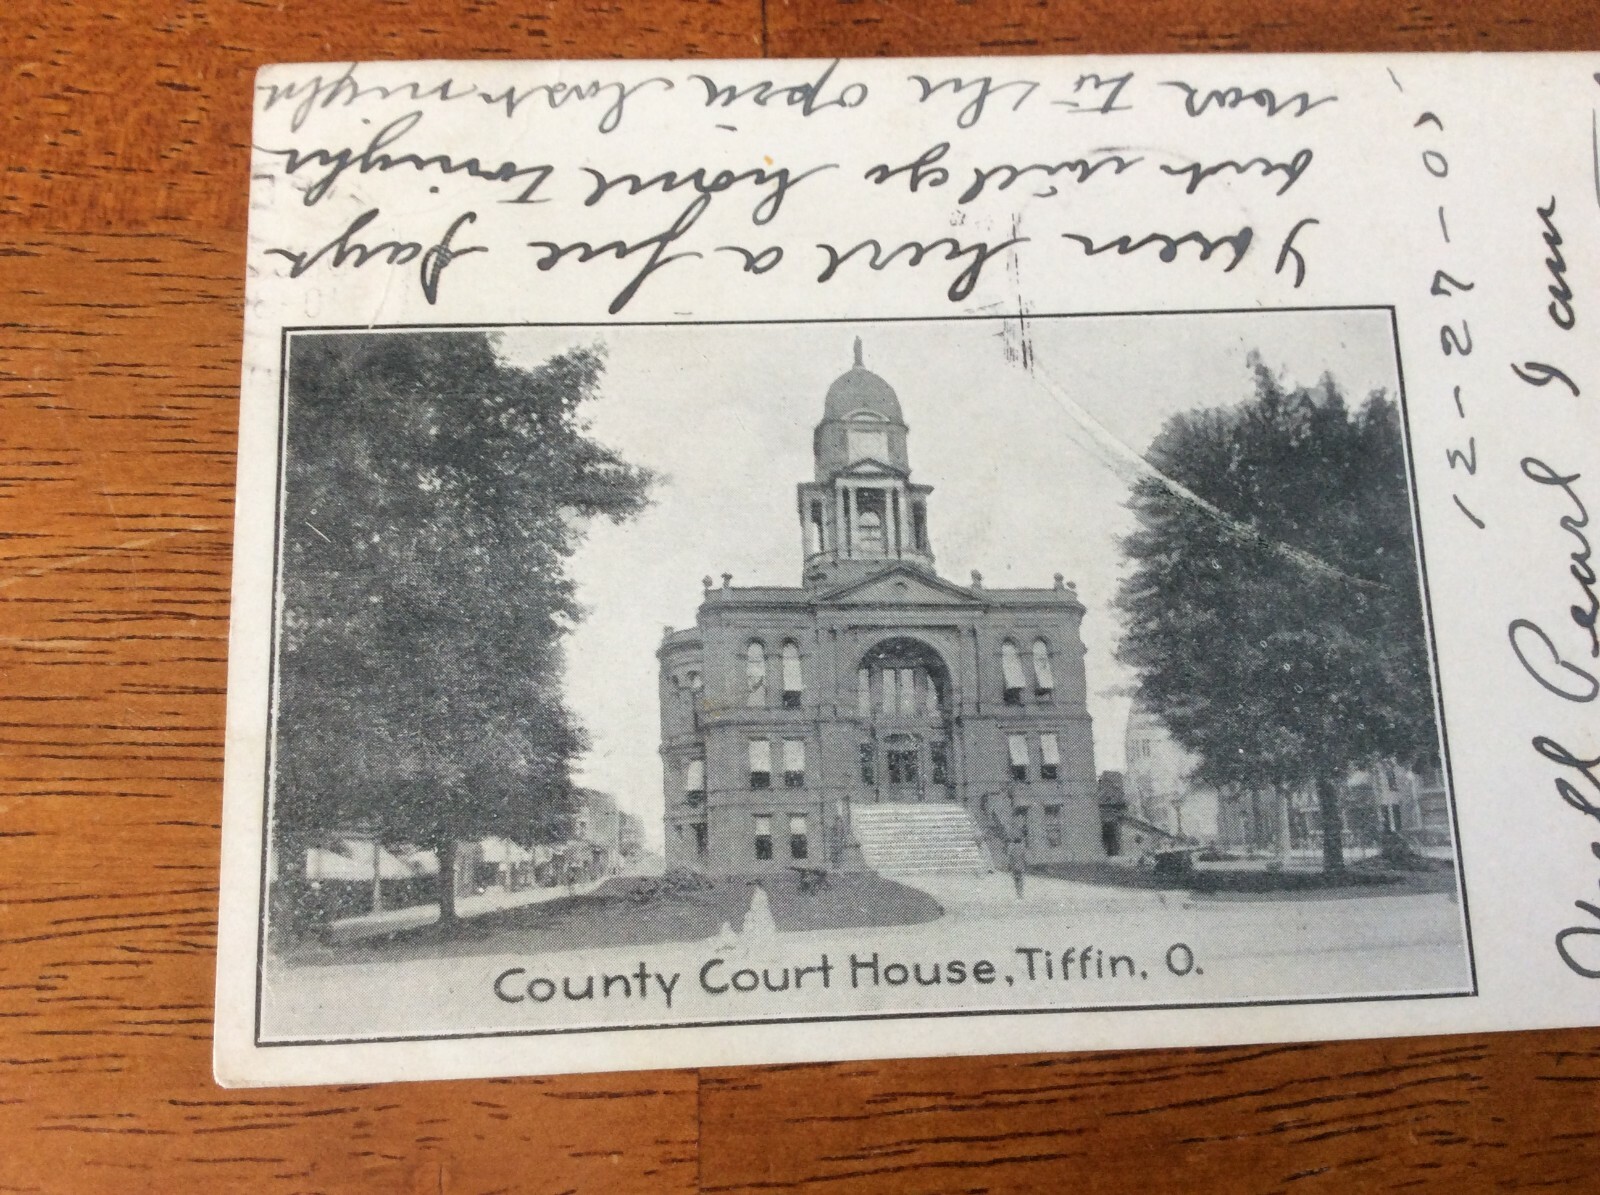 Well Pearl I am
over here a few days
but will go home tonight
was to the opra last night
12-27-0
County Court House, Tiffin, O.